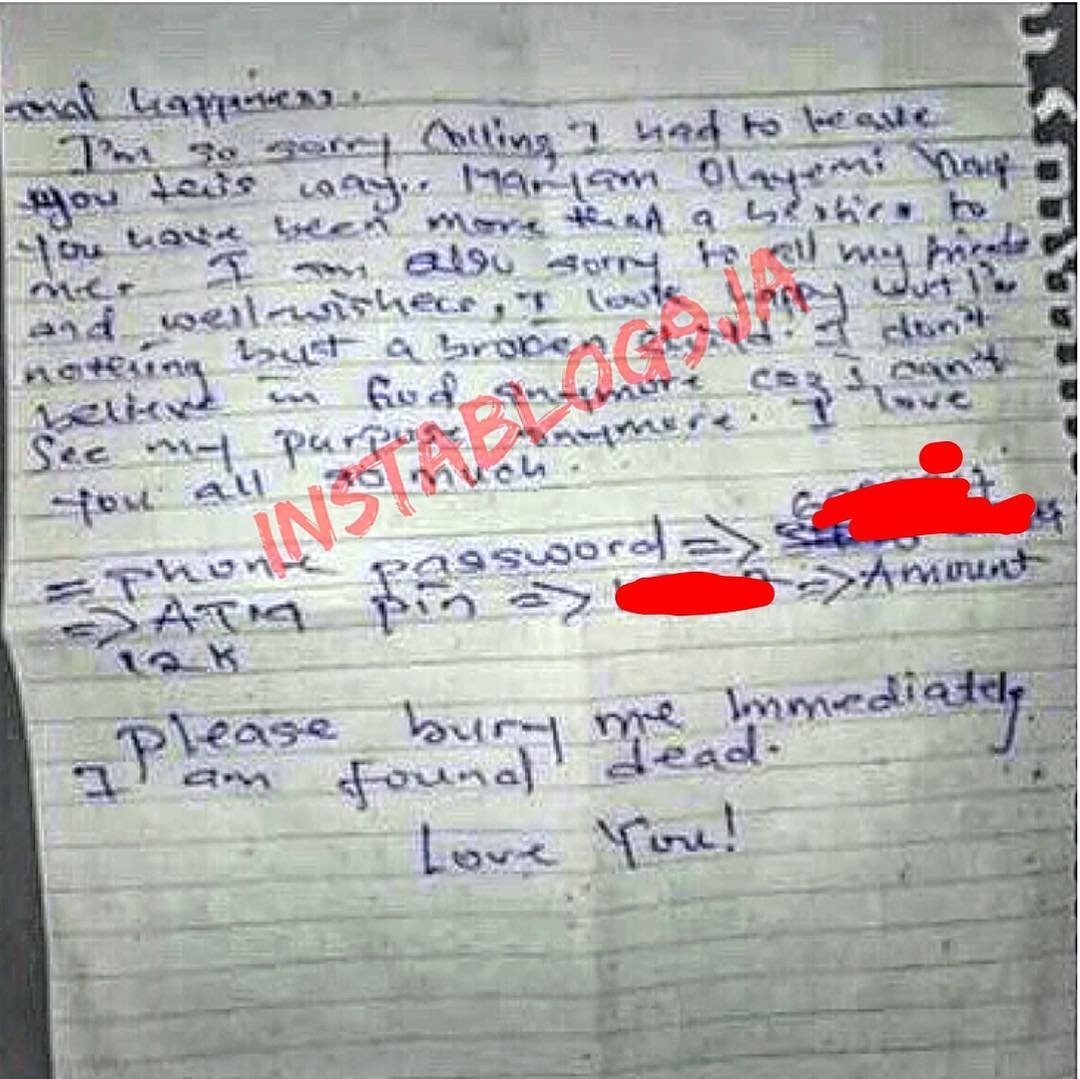 happiness.
I'm so sorry I had to leave
you this way.. Maryam Olayemi
you have been more than a besties to
me. I am also sorry to all my friends
and well-wishers, I look happy but I'm
nothing but a broken I don't
believe in God anymore coz I can't
See my purpose anymore. I love
you all so much.
= Phone password =>
=> ATM pin => => Amount
12K
Please bury me Immediately
I am found dead.
Love You!
INSTABLOG9JA